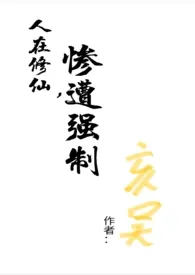 人在修仙,
惨遭强制
作者:
亥呈